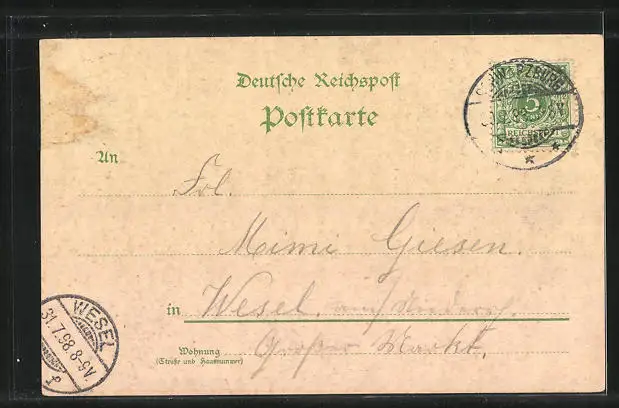 Deutsche Reichspost
Postkarte
SCHWARZBURG
5
REICHSPOST
An
Frl.
Mimi Giesen.
in Wesel.
Großer Markt.
Wohnung
(Straße und Hausnummer)
WESEL
31.7.98.8-9A.